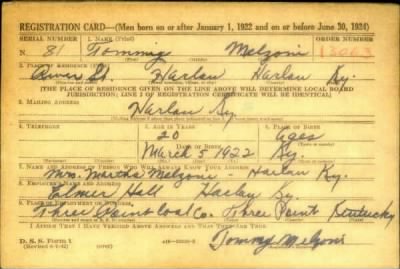 REGISTRATION CARD—(Men born on or after January 1, 1922 and on or before June 30, 1924)
SERIAL NUMBER 1. NAME (Print) ORDER NUMBER
N 81 Tommy Melzoni 13063
(First) (Middle) (Last)
2. PLACE OF RESIDENCE (Print)
River St. Harlan Harlan Ky.
[THE PLACE OF RESIDENCE GIVEN ON THE LINE ABOVE WILL DETERMINE LOCAL BOARD
JURISDICTION; LINE 2 OF REGISTRATION CERTIFICATE WILL BE IDENTICAL]
3. MAILING ADDRESS
Harlan Ky.
4. TELEPHONE 5. AGE IN YEARS 6. PLACE OF BIRTH
20 Ages
DATE OF BIRTH
March 5 1922 Ky.
7. NAME AND ADDRESS OF PERSON WHO WILL ALWAYS KNOW YOUR ADDRESS
Mrs. Martha Melzoni - Harlan Ky.
8. EMPLOYER'S NAME AND ADDRESS
Elmer Hall Harlan Ky.
9. PLACE OF EMPLOYMENT OR BUSINESS
Three Point Coal Co. Three Point Kentucky
I AFFIRM THAT I HAVE VERIFIED ABOVE ANSWERS AND THAT THEY ARE TRUE.
D. S. S. Form 1
Tommy Melzoni